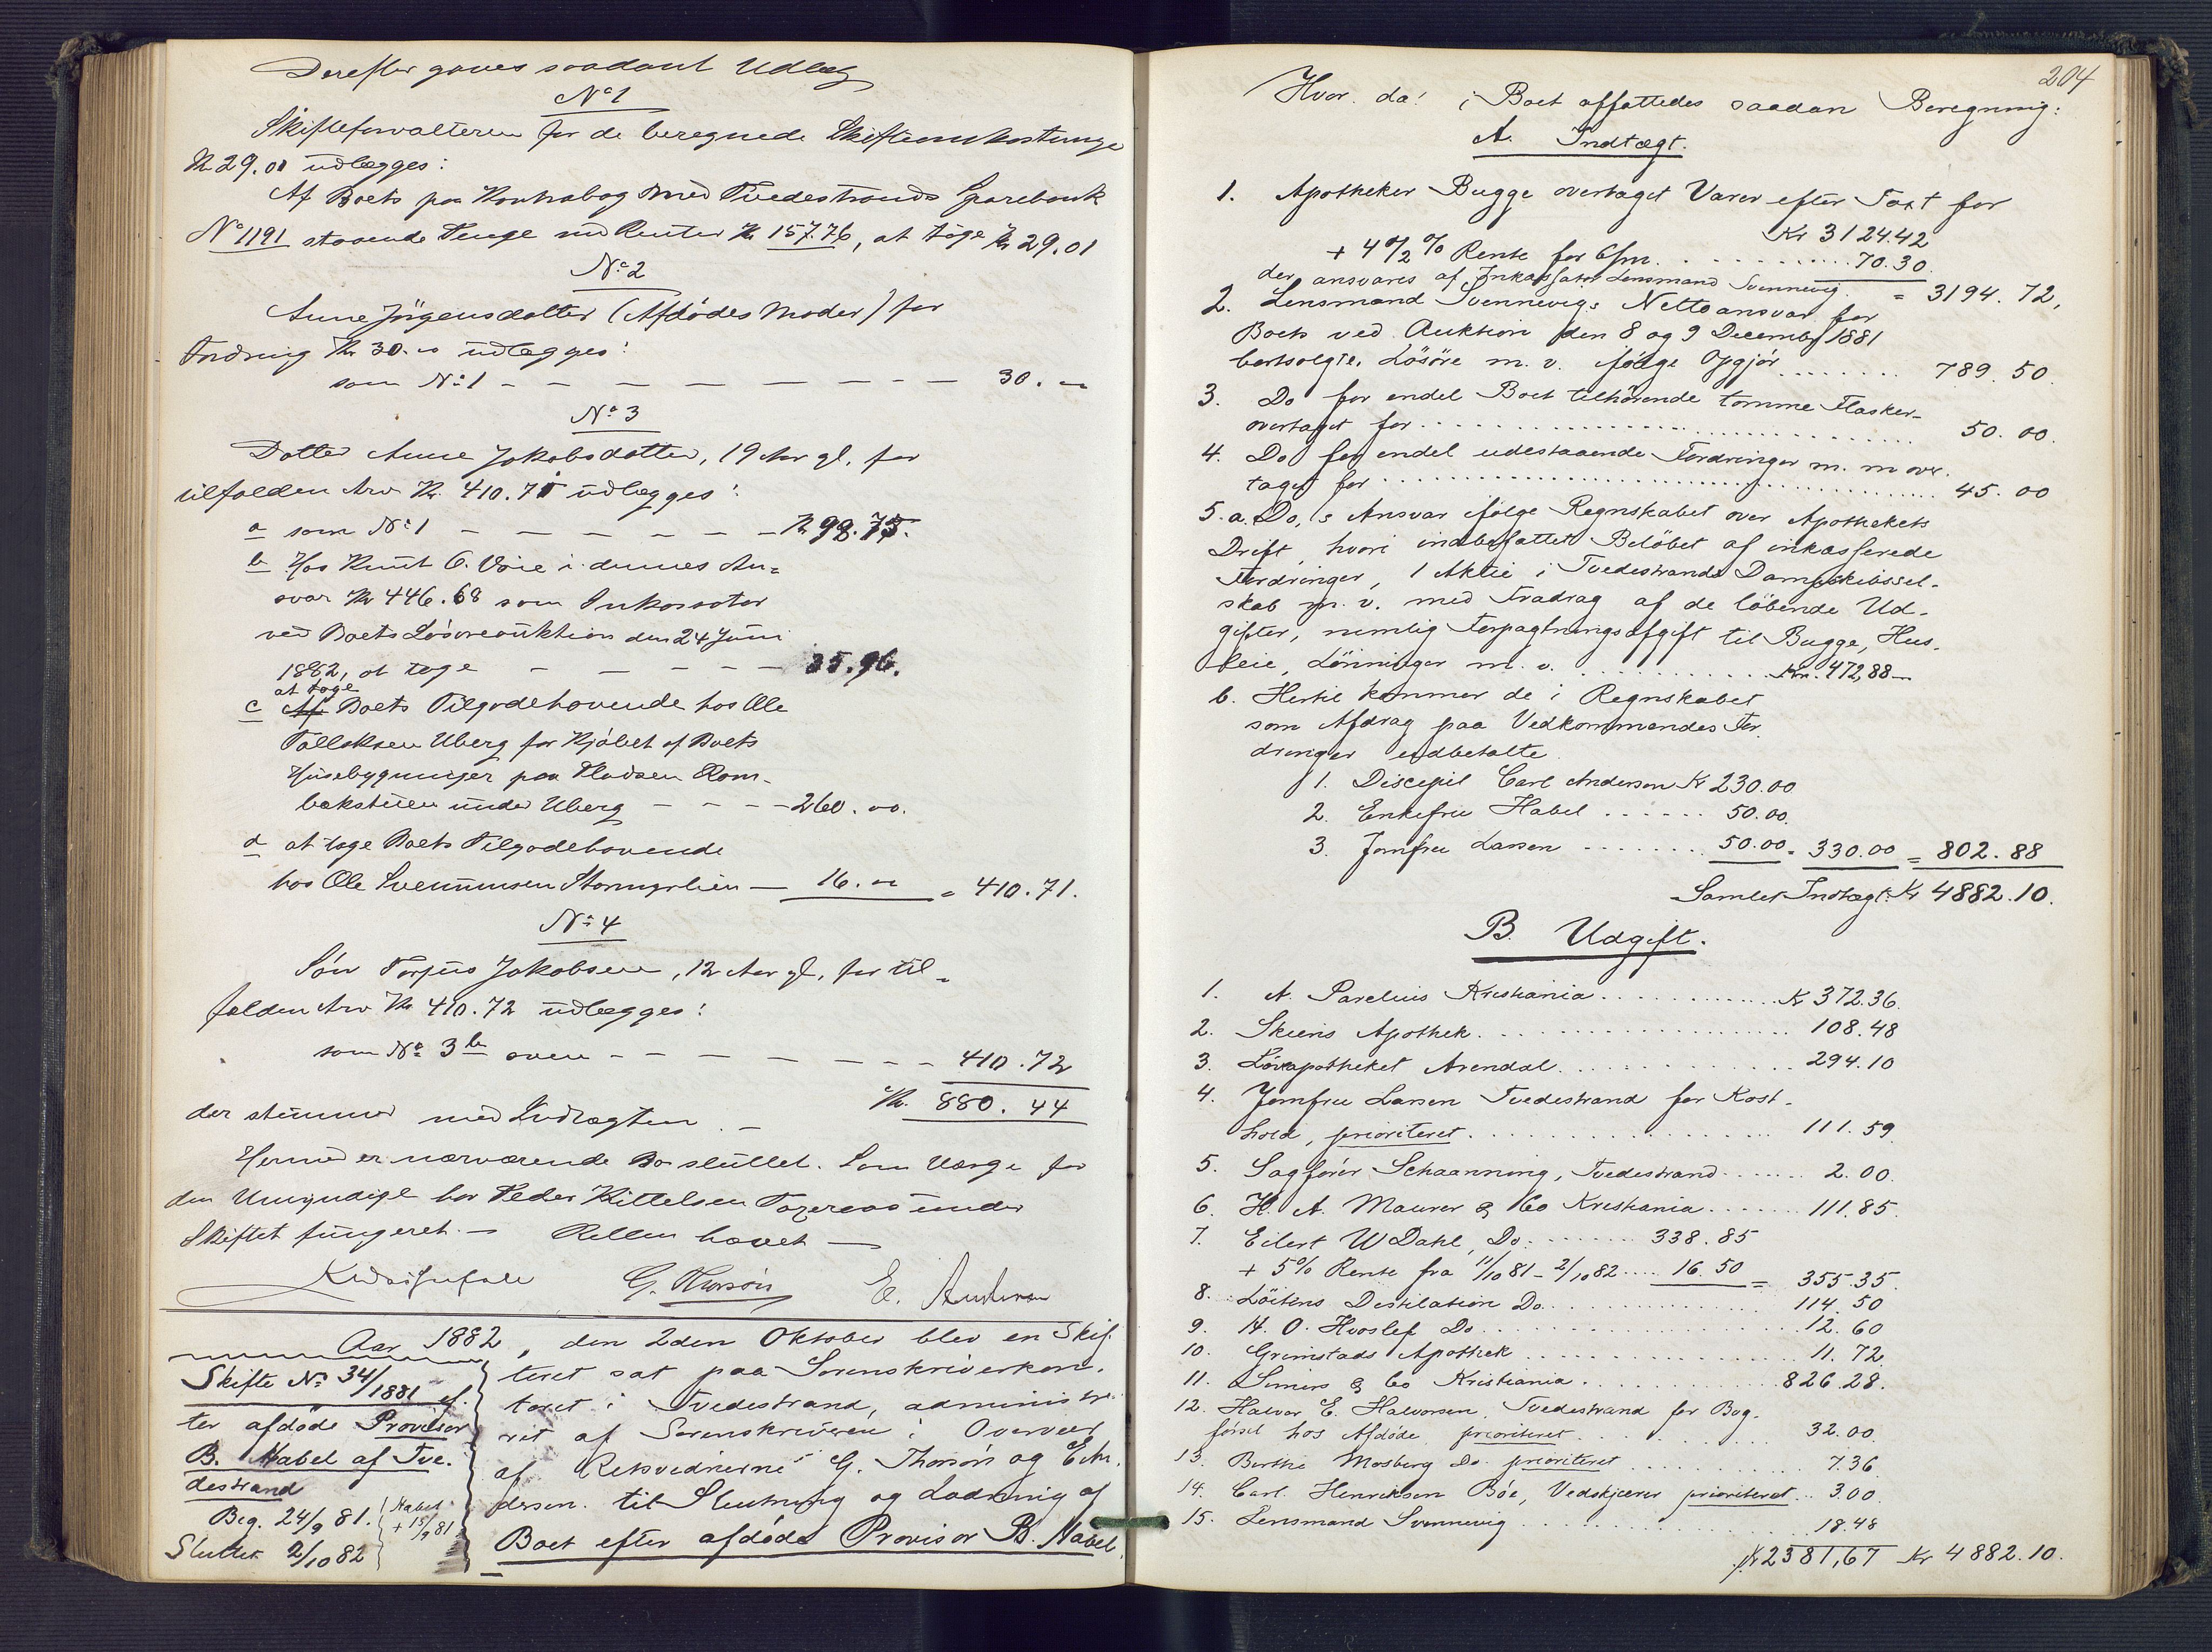 Derefter gaves saadant Udlæg
No 1
Skifteforvalteren for de beregnede Skifteomkostninger
Kr 29.01 udlægges:
Af Boets paa Kontrabog med Tvedestrands Sparebank
No 1191 staaende Penge med Renter Kr 157.76, at tage Kr 29.01
No 2
Anne Jörgensdatter (Afdödes Moder) for
Fordring Kr 30.00 udlægges:
som No 1 – – – – – – – – 30. 00
No 3
Datter Anne Jakobsdatter, 19 Aar gl. for
tilfalden Arv Kr. 410.71 udlægges:
a som No 1 – – – – – – Kr 98.75.
b Hos Knut O. Vöie i dennes An=
svar Kr 446.68 som Inkassator
ved Boets Lösöreauktion den 24 Juni
1882, at tage – – – – – 35.96.
at tage
c Af Boets Tilgodehavende hos Ole
Tallaksen Uberg for Kjöbet af Boets
Husebygninger paa Pladsen Rom-
bakstuen under Uberg – – – – 260.00.
d at tage Boets Tilgodehavende
hos Ole Svennumsen – 16.00 = 410.71.
No 4
Sön Torjus Jakobsen, 12 Aar gl. for til-
falden Arv Kr 410.72 udlægges:
som No 3 b oven – – – – – – – 410.72
der stemmer med Indtægten. – Kr. 880.44
Hermed er nærværende Bo sluttet. Som Værge for
den Umyndige har Peder Kittelsen under
Skiftet fungeret. – Retten hævet –
G. Thorsön E. Andersen
Aar 1882, den 2den Oktober blev en Skif-
teret sat paa Sorenskriverkon-
toret i Tvedestrand, administre-
ret af Sorenskriveren i Overvær
af Retsvidnerne G. Thorsön og E. An-
dersen til Slutning og Lodning af
Boet efter afdöde Provisor B. Habel.
Skifte No 34/1881 ef-
ter afdöde Provisor
B. Habel af Tve-
destrand
Beg. 24/9 81.
Sluttet 2/10 82
Habel
+ 15/9 81
204
Hvor da i Boet affattedes saadan Beregning:
A. Indtægt.
1. Apotheker Bugge overtaget Varer efter Taxt for
Kr 3124.42
+ 4 1/2 % Rente for 6 m. . . . . . . . 70.30
der ansvares af Inkassator Lensmand Svennevig = 3194.72,
2. Lensmand Svennevigs Nettoansvar for
Boets ved Auktion den 8 og 9 Decemb 1881
bortsolgte Lösöre m. v. ifölge Opgjör . . . . . . . . 789.50.
3. Do for endel Boet tilhörende tomme Flasker
overtaget for . . . . . . . . . . . . . . . . 50.00.
4. Do for endel udestaaende Fordringer m. m over-
taget for . . . . . . . . . . . . . . . . 45.00
5. a. Do,s Ansvar ifölge Regnskabet over Apothekets
Drift, hvori indbefattet Belöbet af inkasserede
Fordringer, 1 Aktie i Tvedestrands Dampskibssel-
skab m. v. med Fradrag af de löbende Ud-
gifter, nemlig Forpagtningsafgift til Bugge, Hus-
leie, Lönninger m. v. . . . . . . . Kr. 472,88
b. Hertil kommer de i Regnskabet
som Afdrag paa Vedkommendes For-
dringer udbetalte
1. Discipel Carl Anderson Kr 230.00
2. Enkefru Habel . . . . . . 50.00.
3. Jomfru Larsen . . . . . . 50.00. = 330.00 = 802.88
Samlet Indtægt: Kr 4882.10.
B. Udgift.
1. A. Parelius Kristiania . . . . . . . . Kr 372.36.
2. Skiens Apothek . . . . . . . . 108.48
3. Löveapotheket Arendal . . . . . . . . 294.10
4. Jomfru Larsen Tvedestrand for Kost-
hold, prioriteret . . . . . . . . 111.59
5. Sagförer Schaanning, Tvedestrand . . . . . . 2.00.
6. H. A. Maurer & Co Kristiania . . . . . . 111.85.
7. Eilert W Dahl, Do . . . . . . 338.85
+ 5% Rente fra 11/10 81 - 2/10 82 . . . . 16.50 = 355.35.
8. Löitens Destilation Do. . . . . . . . 114.50
9. H. O. Hvoslef Do . . . . . . . . 12.60
10. Grimstads Apothek . . . . . . . . 11.72.
11. & Co Kristiania . . . . . . . . 826.28.
12. Halvor E. Halvorsen, Tvedestrand for Bog-
försel hos Afdöde prioriteret . . . . . . . . 32.00.
13. Berthe Mosberg Do prioriteret . . . . . . . . 7.36
14. Carl Henriksen Böe, Vedskjærer prioriteret . . 3.00.
15. Lensmand Svennevig . . . . . . . . 18.48
Kr 2381,67 Kr 4882.10.